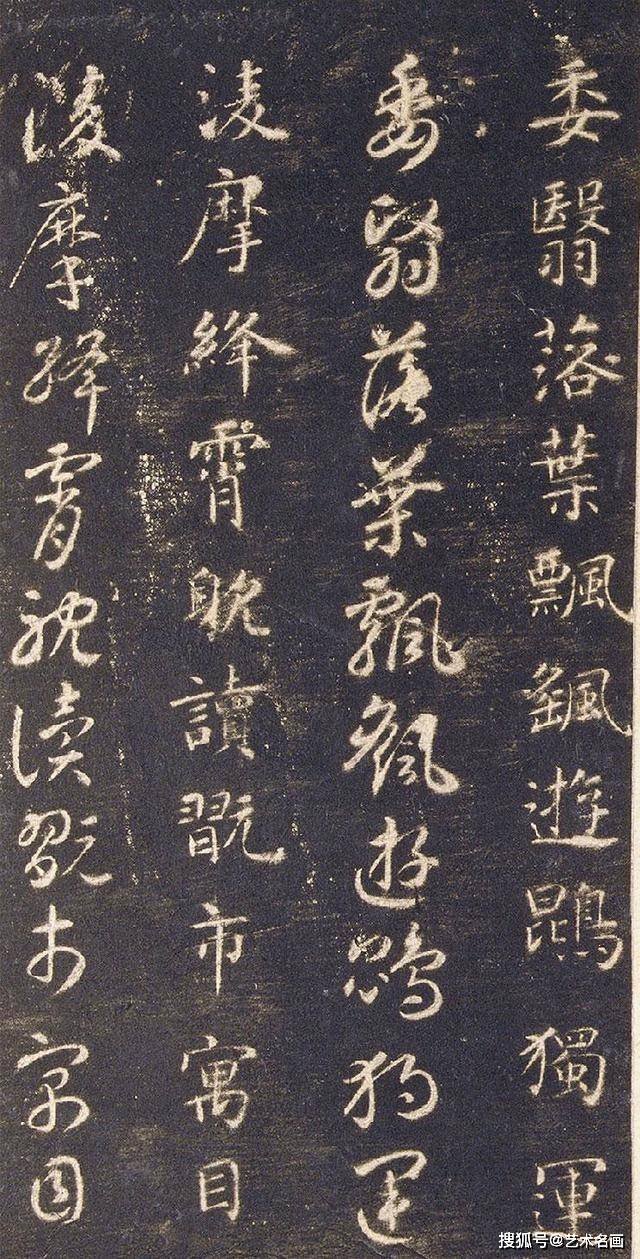 委翳落葉飄颻遊鵾獨運
委翳落葉飄颻遊鵾獨運
淩摩絳霄耽讀翫市寓目
淩摩絳霄耽讀翫市寓目
搜狐号@艺术名画